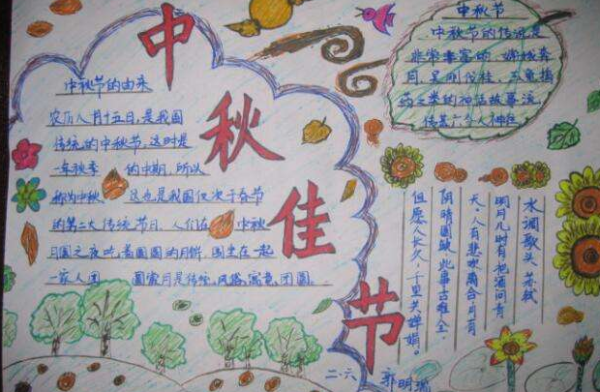 中秋佳节
中秋节的由来
农历八月十五日,是我国
传统的中秋节,这时是
一年秋季 的中期,所以
称为中秋 这也是我国仅次于春节
的第二大传统节日,人们在 中秋
月圆之夜吃着圆圆的月饼,围坐在一起
一家人团 圆赏月是传统,风俗,寓意,团圆.
中秋节
中秋节的传说是
非常丰富的,嫦娥奔
月,吴刚伐桂,玉兔捣
药之类的神话故事流
传甚广令人神往
水调歌头 苏轼
明月几时有,把酒问青
天。人有悲欢离合,月有
阴晴圆缺,此事古难全.
但愿人长久,千里共婵娟。
二.六 郭明